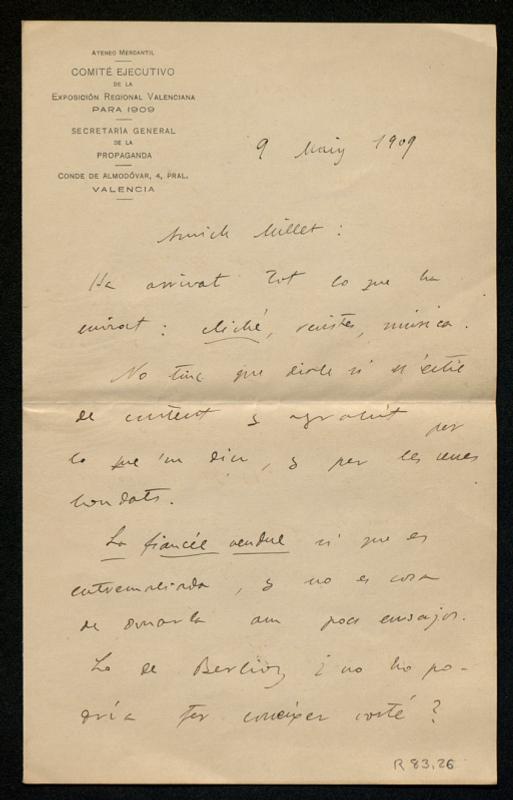 ATENEO MERCANTIL
COMITÉ EJECUTIVO
DE LA
EXPOSICIÓN REGIONAL VALENCIANA
PARA 1909
SECRETARÍA GENERAL
DE LA
PROPAGANDA
CONDE DE ALMODÓVAR, 4, PRAL.
VALENCIA
9 Maig 1909
Amich Millet:
Ha arrivat tot lo que ha
enviat: cliché, revistes, música.
No tinc que dirle si n'estic
de content y agrahit per
lo que 'm diu, y per les seues
bondats.
La fiancée vendue si que es
entremaliada, y no es cosa
de donarla am pocs ensajos.
Lo de Berlioz ¿no ho po-
dría fer coneixer vosté?
R 83,26